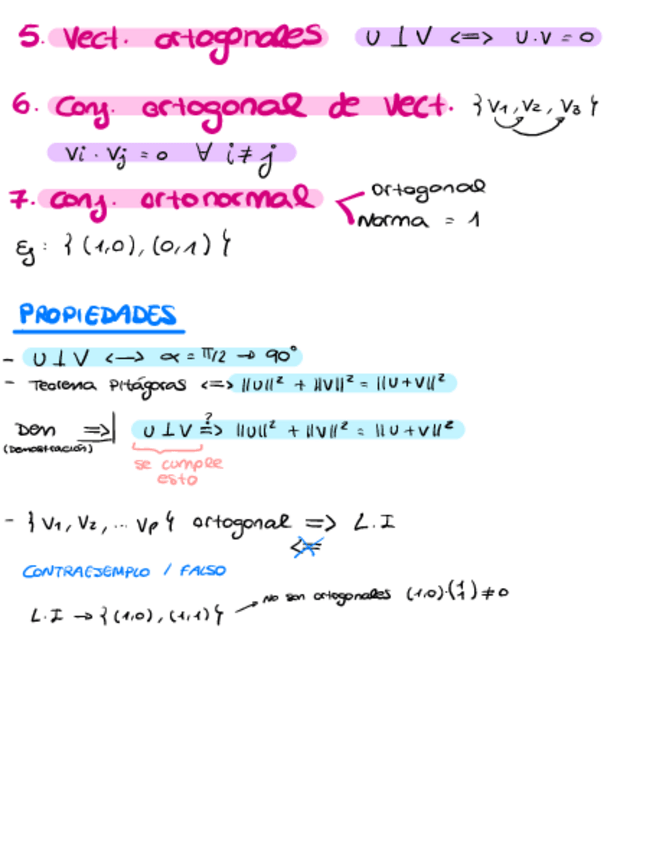 5. Vect. ortogonales U ⊥ V <=> U·V = 0
6. Conj. ortogonal de vect. {V1, V2, V3}
Vi · Vj = 0 ∀ i ≠ j
7. Conj. ortonormal
Ortogonal
Norma = 1
Ej: {(1,0), (0,1)}
PROPIEDADES
- U ⊥ V <-> α = π/2 → 90°
- Teorema Pitágoras <=> ||U||² + ||V||² = ||U+V||²
Dem =>| U ⊥ V ?=> ||U||² + ||V||² = ||U+V||²
(Demostración)
se cumple
esto
- {V1, V2, ... Vp} ortogonal => L.I
<=
CONTRAEJEMPLO / FALSO
L.I → {(1,0), (1,1)} → No son ortogonales (1,0)·(1 1) ≠ 0